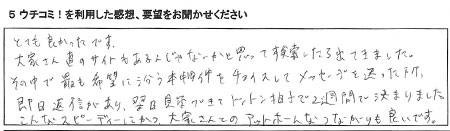 5 ウチコミ！を利用した感想、要望をお聞かせください
とても良かったです。
大家さん直のサイトもあるんじゃないかと思って検索したら出てきました。
その中で最も希望に沿う本物件をチョイスしてメッセージを送った所、
即日返信があり、翌日見学できてトントン拍子で2週間で決まりました。
こんなスピーディーにかつ、大家さんとのアットホームなつながりも良いです。